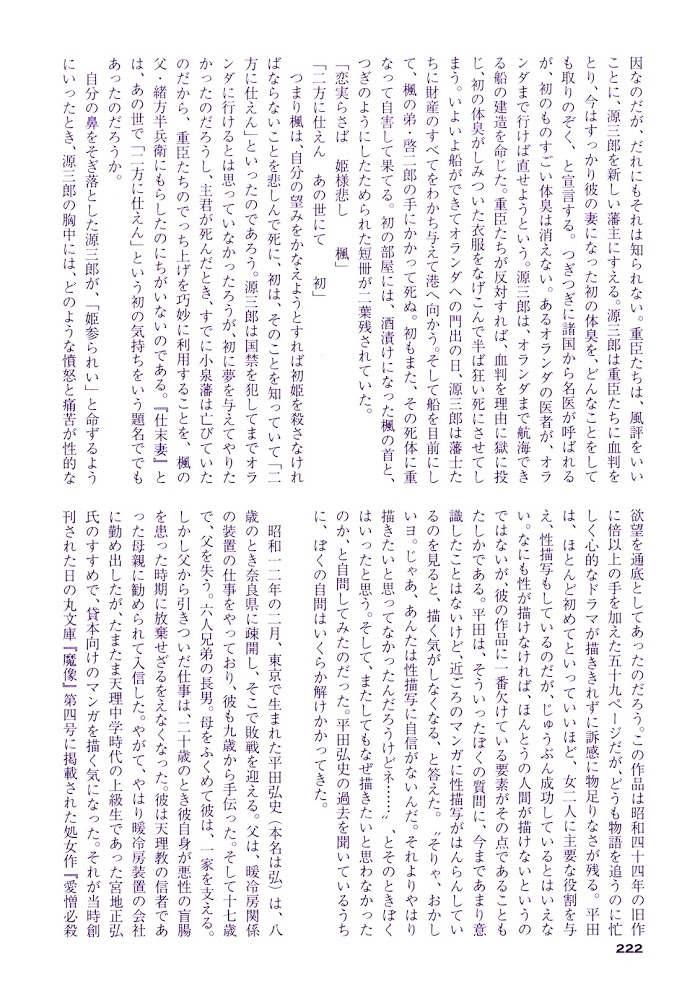 因なのだが、だれにもそれは知られない。重臣たちは、風評をいい
ことに、源三郎を新しい藩主にすえる。源三郎は重臣たちに血判を
とり、今はすっかり彼の妻になった初の体臭を、どんなことをして
も取りのぞく、と宣言する。つぎつぎに諸国から名医が呼ばれる
が、初のものすごい体臭は消えない。あるオランダの医者が、オラ
ンダまで行けば直せようという。源三郎は、オランダまで航海でき
る船の建造を命じた。重臣たちが反対すれば、血判を理由に獄に投
じ、初の体臭がしみついた衣服をなげこんで半ば狂い死にさせてし
まう。いよいよ船ができてオランダへの門出の日、源三郎は藩士た
ちに財産のすべてをわかち与えて港へ向かう。そして船を目前にし
て、楓の弟・啓二郎の手にかかって死ぬ。初もまた、その死体に重
なって自害して果てる。初の部屋には、酒漬けになった楓の首と、
つぎのようにしたためられた短冊が二葉残されていた。
「恋実らさば　姫様悲し　楓」
「二方に仕えん　あの世にて　初」
つまり楓は、自分の望みをかなえようとすれば初姫を殺さなけれ
ばならないことを悲しんで死に、初は、そのことを知っていて「二
方に仕えん」といったのであろう。源三郎は国禁を犯してまでオラ
ンダに行けるとは思っていなかったろうが、初に夢を与えてやりた
かったのだろうし、主君が死んだとき、すでに小泉藩は亡びていた
のだから、重臣たちのでっち上げを巧妙に利用することを、楓の
父・緒方半兵衛にもらしたのにちがいないのである。『仕末妻』と
は、あの世で「二方に仕えん」という初の気持ちをいう題名ででも
あったのだろうか。
自分の鼻をそぎ落とした源三郎が、「姫参られい」と命ずるよう
にいったとき、源三郎の胸中には、どのような憤怒と痛苦が性的な
欲望を通底としてあったのだろう。この作品は昭和四十四年の旧作
に倍以上の手を加えた五十九ページだが、どうも物語を追うのに忙
しく心的なドラマが描ききれずに訴感に物足りなさが残る。平田
は、ほとんど初めてといっていいほど、女二人に主要な役割を与
え、性描写もしているのだが、じゅうぶん成功しているとはいえな
い。なにも性が描けなければ、ほんとうの人間が描けないというの
ではないが、彼の作品に一番欠けている要素がその点であることも
たしかである。平田は、そういったぼくの質問に、今まであまり意
識したことはないけど、近ごろのマンガに性描写がはんらんしてい
るのを見ると、描く気がしなくなる、と答えた。〝そりゃ、おかし
いヨ。じゃあ、あんたは性描写に自信がないんだ。それよりやはり
描きたいと思ってなかったんだろうけどネ……〟、とそのときぼく
はいったと思う。そして、またしてもなぜ描きたいと思わなかった
のか、と自問してみたのだった。平田弘史の過去を聞いているうち
に、ぼくの自問はいくらか解けかかってきた。
昭和一二年の二月、東京で生まれた平田弘史（本名は弘）は、八
歳のとき奈良県に疎開し、そこで敗戦を迎える。父は、暖冷房関係
の装置の仕事をやっており、彼も九歳から手伝った。そして十七歳
で、父を失う。六人兄弟の長男。母をふくめて彼は、一家を支える。
しかし父から引きついだ仕事は、二十歳のとき彼自身が悪性の盲腸
を患った時期に放棄せざるをえなくなった。彼は天理教の信者であ
った母親に勧められて入信した。やがて、やはり暖冷房装置の会社
に勤め出したが、たまたま天理中学時代の上級生であった宮地正弘
氏のすすめで、貸本向けのマンガを描く気になった。それが当時創
刊された日の丸文庫『魔像』第四号に掲載された処女作『愛憎必殺
222